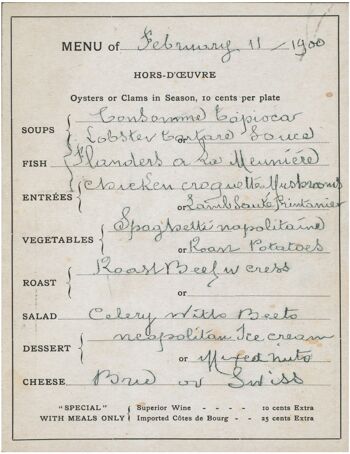 MENU of February 11 / 1900
HORS-D'ŒUVRE
Oysters or Clams in Season, 10 cents per plate
SOUPS { Consomme Tapioca
or Lobster Tartare Sauce
FISH { Flanders a La Meuniére
ENTRÉES { Chicken croquette Mushrooms
or Lamb Sauté Printanier
VEGETABLES { Spaghetti napolitaine
or Roast Potatoes
ROAST { Roast Beef w cress
or
SALAD Celery With Beets
DESSERT { neapolitan Ice cream
or Mixed nuts
CHEESE Brie or Swiss
"SPECIAL" WITH MEALS ONLY { Superior Wine - - - - 10 cents Extra
Imported Côtes de Bourg - - 25 cents Extra